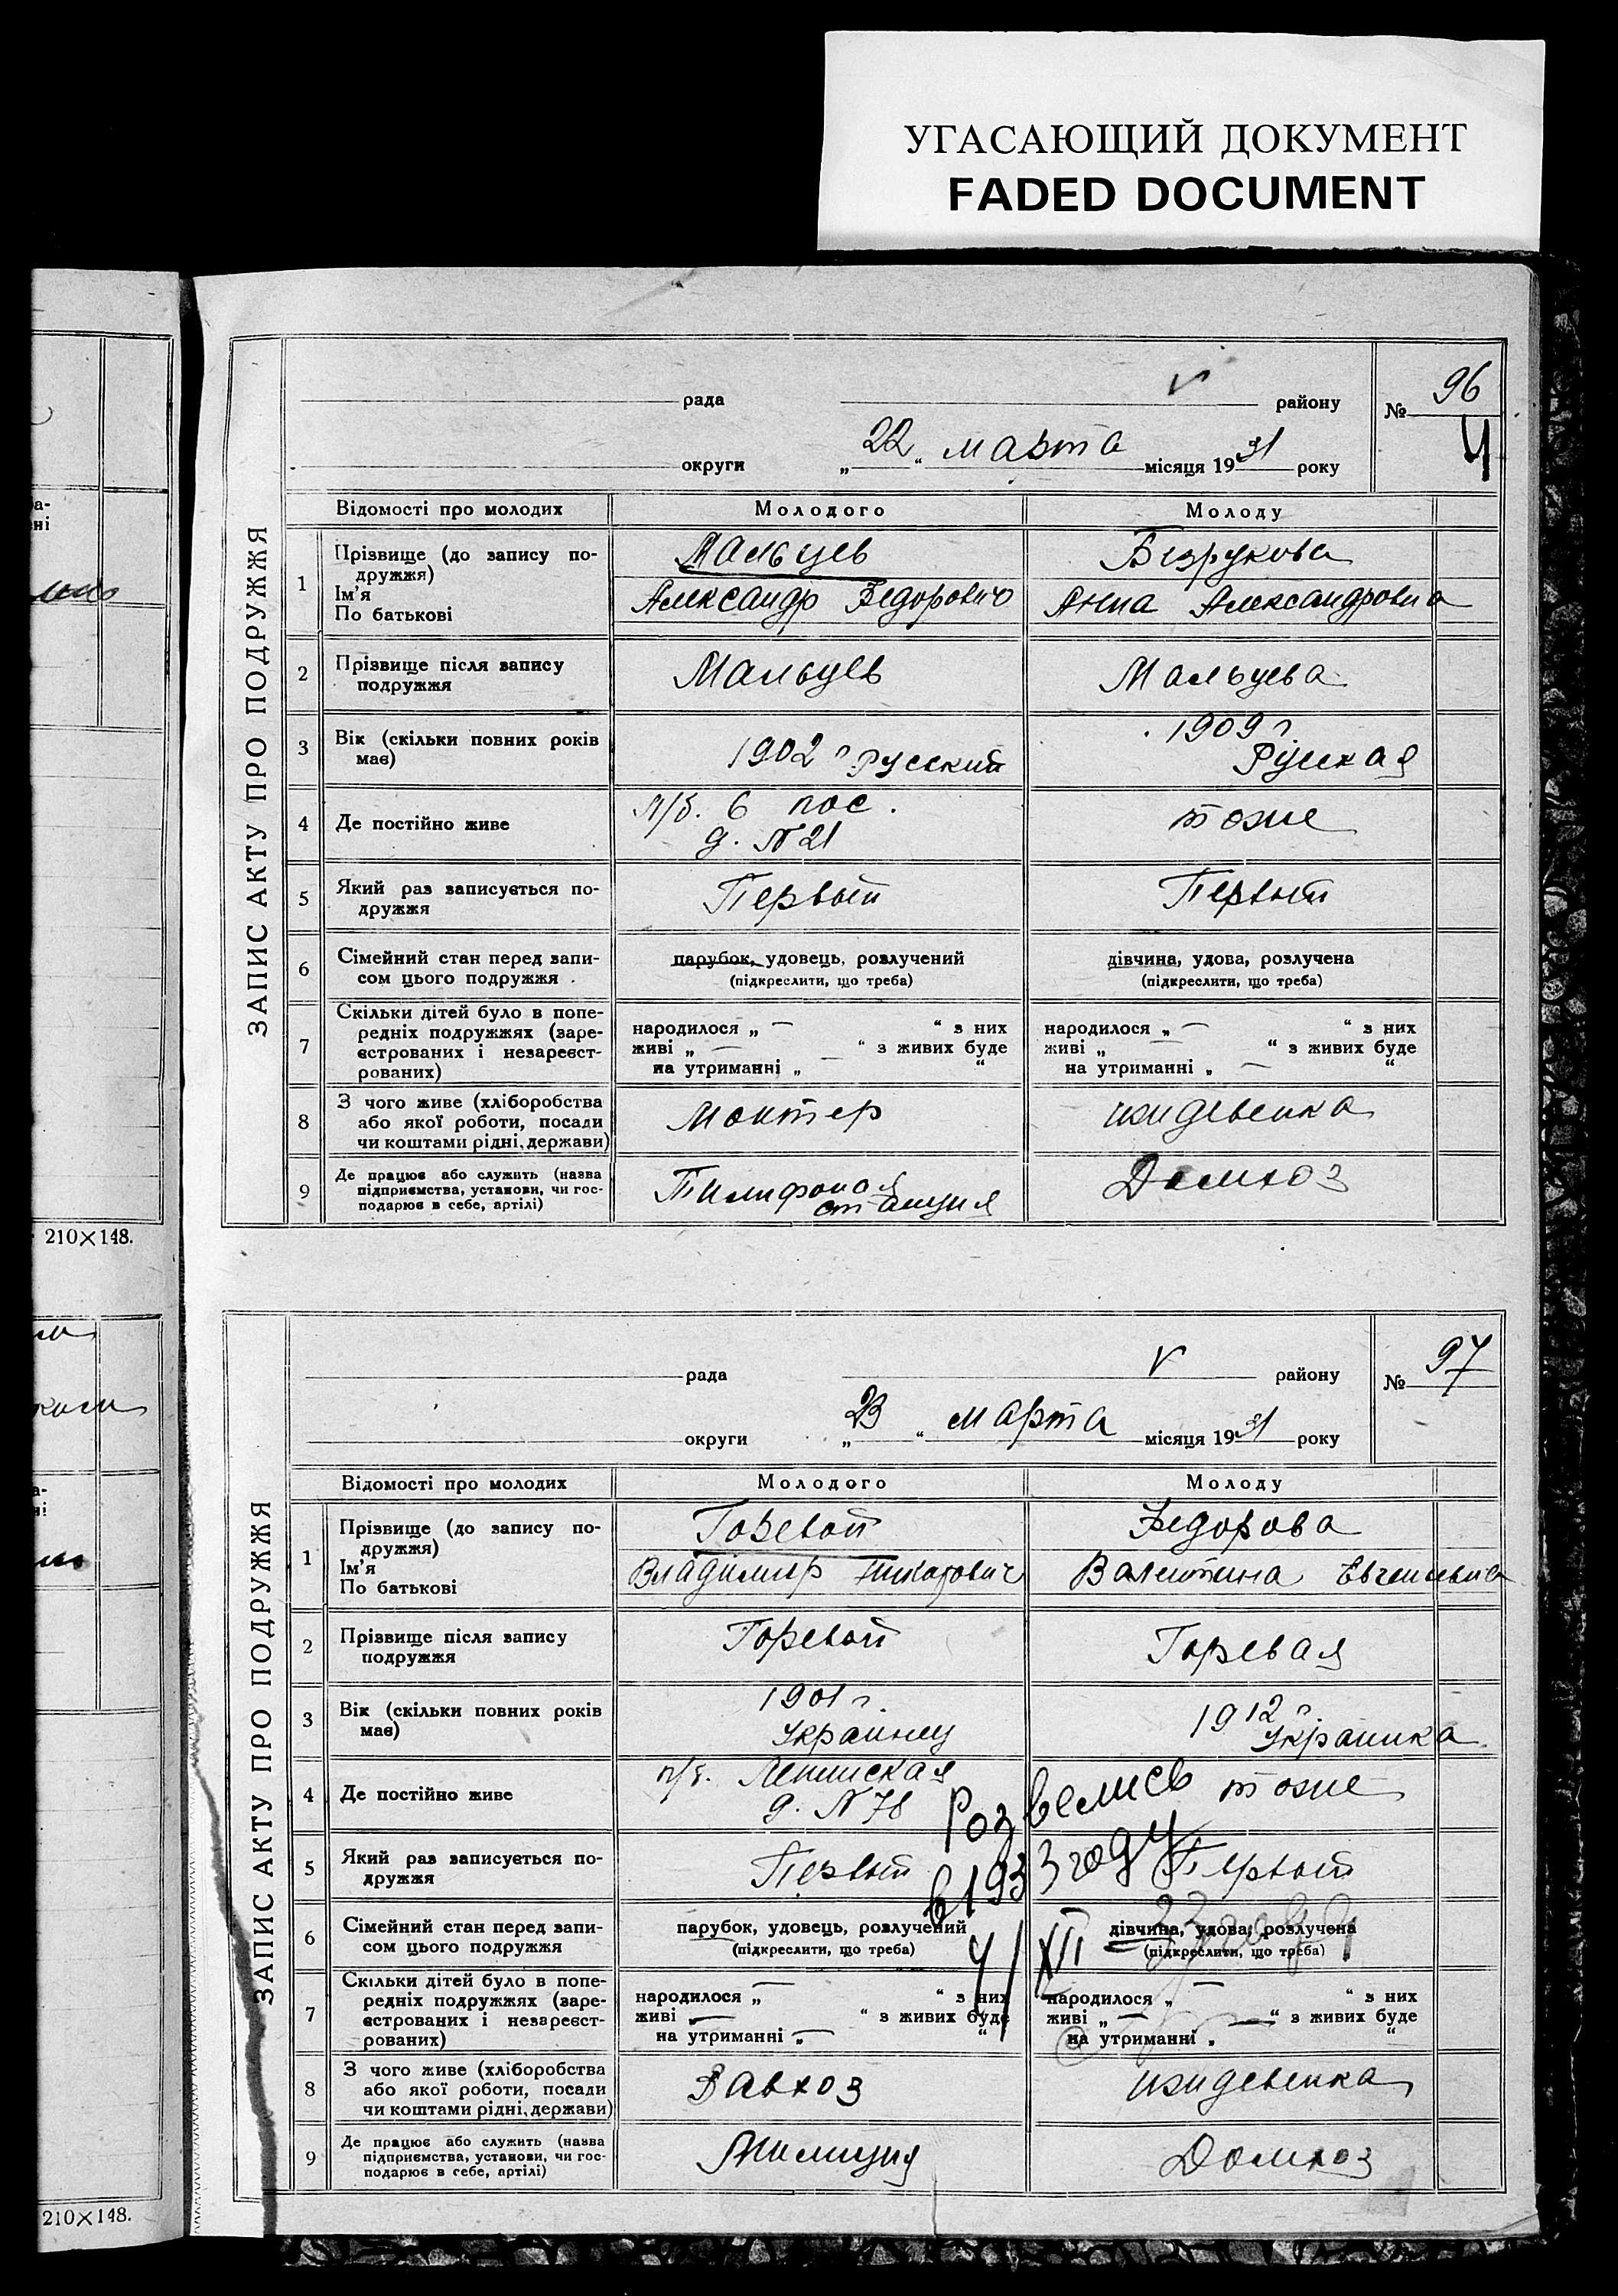 УГАСАЮЩИЙ ДОКУМЕНТ
FADED DOCUMENT
ЗАПИС АКТУ ПРО ПОДРУЖЖЯ
рада V району № 96
округи „22“ марта місяця 1931 року
Ч
Відомості про молодих Молодого Молоду
1 Прізвище (до запису по-
дружжя)
Ім'я
По батькові
Мальцев Безрукова
Александр Федорович Анна Александровна
2 Прізвище після запису
подружжя
Мальцев Мальцева
3 Вік (скільки повних років
має)
1902 г Русский 1909 г.
Русская
4 Де постійно живе
п/б. 6 пос. тоже
д. №21
5 Який раз записується по-
дружжя
Первый Первый
6 Сімейний стан перед запи-
сом цього подружжя
парубок, удовець, розлучений дівчина, удова, розлучена
(підкреслити, що треба) (підкреслити, що треба)
7 Скільки дітей було в попе-
редніх подружжях (заре-
єстрованих і незареєст-
рованих)
народилося „ — “ з них народилося „ — “ з них
живі „ — “ з живих буде живі „ — “ з живих буде
на утриманні „ — “ на утриманні „ — “
8 З чого живе (хліборобства
або якої роботи, посади
чи коштами рідні, держави)
Монтер иждевенка
9 Де працює або служить (назва
підприємства, установи, чи гос-
подарює в себе, артілі)
Тилифоная Домхоз
станция
210×148.
ЗАПИС АКТУ ПРО ПОДРУЖЖЯ
рада V району № 97
округи „23“ марта місяця 1931 року
Відомості про молодих Молодого Молоду
1 Прізвище (до запису по-
дружжя)
Ім'я
По батькові
Горевой Федорова
Владимир Валентина Евгеньевна
2 Прізвище після запису
подружжя
Горевой Горевая
3 Вік (скільки повних років
має)
1901 г. 1912 г.
Украинец Украинка
4 Де постійно живе
п/б. Ленинская тоже
д. №78
Розвелись
в 1933 году
4/XII
5 Який раз записується по-
дружжя
Первый Первый
6 Сімейний стан перед запи-
сом цього подружжя
парубок, удовець, розлучений дівчина, удова, розлучена
(підкреслити, що треба) (підкреслити, що треба)
7 Скільки дітей було в попе-
редніх подружжях (заре-
єстрованих і незареєст-
рованих)
народилося „ — “ з них народилося „ — “ з них
живі „ — “ з живих буде живі „ — “ з живих буде
на утриманні „ — “ на утриманні „ “
8 З чого живе (хліборобства
або якої роботи, посади
чи коштами рідні, держави)
Завхоз иждевенка
9 Де працює або служить (назва
підприємства, установи, чи гос-
подарює в себе, артілі)
Милиция Домхоз
210×148.